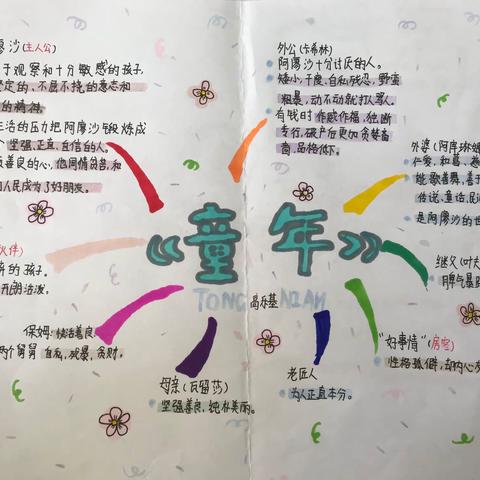 廖沙(主人公)
于观察和十分敏感的孩子,
坚定的、不屈不挠的意志和
的精神.
生活的压力把阿廖沙锻炼成
个坚强、正直、自信的人.
善良的心,他同情贫苦,和
人民成为了好朋友.
外公(卡希林)
阿廖沙十分讨厌的人。
矮小,干瘦,自私残忍,野蛮
粗暴,动不动就打人骂人.
有钱时作威作福,独断
专行,破产后更加贪婪吝
啬,品格低下.
外婆(阿库琳娜
仁爱,和蔼,
能歌善舞,善于
传说,童话,民
是阿廖沙的世
《童年》
TONG NIAN
高尔基
伙伴)
的孩子.
开朗活泼.
继父(叶
脾气暴
保姆:快活善良
两个舅舅 自私,残暴,贪财.
母亲(瓦留莎)
坚强善良,纯朴美丽。
老匠人
为人正直本分。
"好事情"(房客)
性格孤僻,却内心友